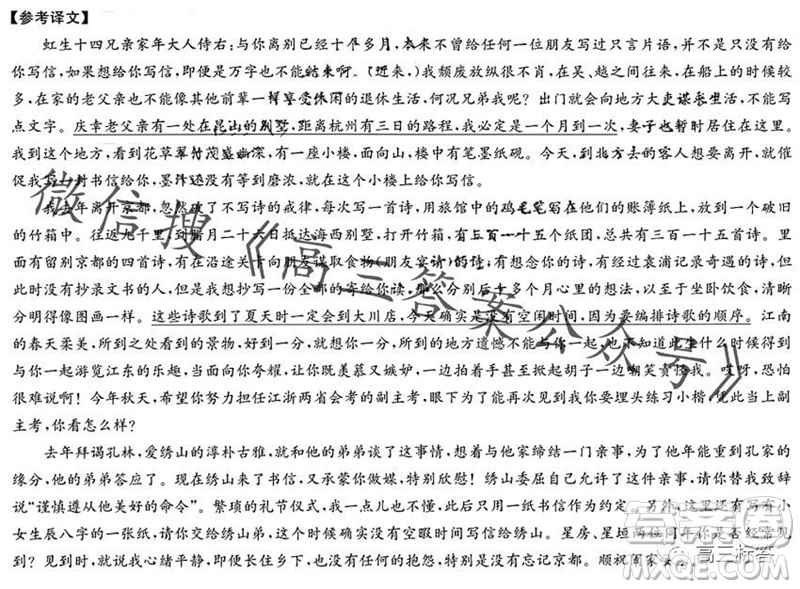 【参考译文】
虹生十四兄亲家年大人侍右：与你离别已经十个多月，本来不曾给任何一位朋友写过只言片语，并不是只没有给
你写信，如果想给你写信，即便是万字也不可能结束啊。（近来，）我颓废放纵很不肖，在吴、越之间往来，在船上的时候较
多，在家的老父亲也不能像其他前辈一样享受休闲的退休生活，何况兄弟我呢？出门就会向地方大吏谋参生活，不能写
点文字。庆幸老父亲有一处在昆山的别墅，距离杭州有三日的路程，我必定是一个月到一次，妻子也暂时居住在这里。
我到这个地方，看到花草翠竹茂盛幽深，有一座小楼，面对山，楼中有笔墨纸砚。今天，到北方去的客人想要离开，就催
促我写一封书信给你，墨汁还没有等到磨浓，就在这个小楼给你写信。
我去年离开京都，忽然破了不写诗的戒律，每次写一首诗，用旅馆中的鸡毛笔写在他们的账簿纸上，投到一个破旧
的竹箱中。往返九千里，到腊月二十六日抵达海西别墅，打开竹箱，有三百一十五个纸团，总共有三百一十五首诗。里
面有留别京都的四首诗，有在沿途关卡向朋友谋取食物（朋友宴请）的诗，有想念你的诗，有经过袁浦记录奇遇的诗，但
此时没有抄录文书的人，但是我想抄写一份全部的寄给你读，那么分别后十多个月心里的想法，以至于坐卧饮食，清晰
分明得像图画一样。这些诗歌到了夏天时一定会到大川店，今天确实是没有空闲时间，因为要编排诗歌的顺序。江南
的春天柔美，所到之处看到的景物，好到一分，就想念你一分，好到十分，就想念你十分，所到的地方遗憾不能与你
一起游览江东的乐趣，当面向你夸耀，让你既羡慕又嫉妒，一边拍着手甚至掀起胡子一边嘲笑责怪我。哎呀，恐怕
很难说啊！今年秋天，希望你努力担任江浙两省会考的副主考，眼下为了能再次见到我你要埋头练习小楷，凭此当上副
主考，你看怎么样？
去年拜谒孔林，爱绣山的淳朴古雅，就和他的弟弟谈了这事情，想着与他家缔结一门亲事，为了他年能重到孔家的
缘分，他的弟弟答应了。现在绣山来了书信，又承蒙你做媒，特别欣慰！绣山委屈自己允许了这件亲事，请你替我致辞
说“谨慎遵从他美好的命令”。繁琐的礼节仪式，我一点儿也不懂，此后只用一纸书信作为约定。另外，这里还写有小
女生辰八字的一张纸，请你交给绣山弟，这个时候确实没有空暇时间写信给绣山。星房、星垣两位同年你是否经常见
到？见到时，就说我心绪平静，即便长住乡下，也没有任何的抱怨，特别是没有忘记京都。顺祝阖家安
微信搜《高三答案公众号》
答案圈
高三标答
MXQE.COM